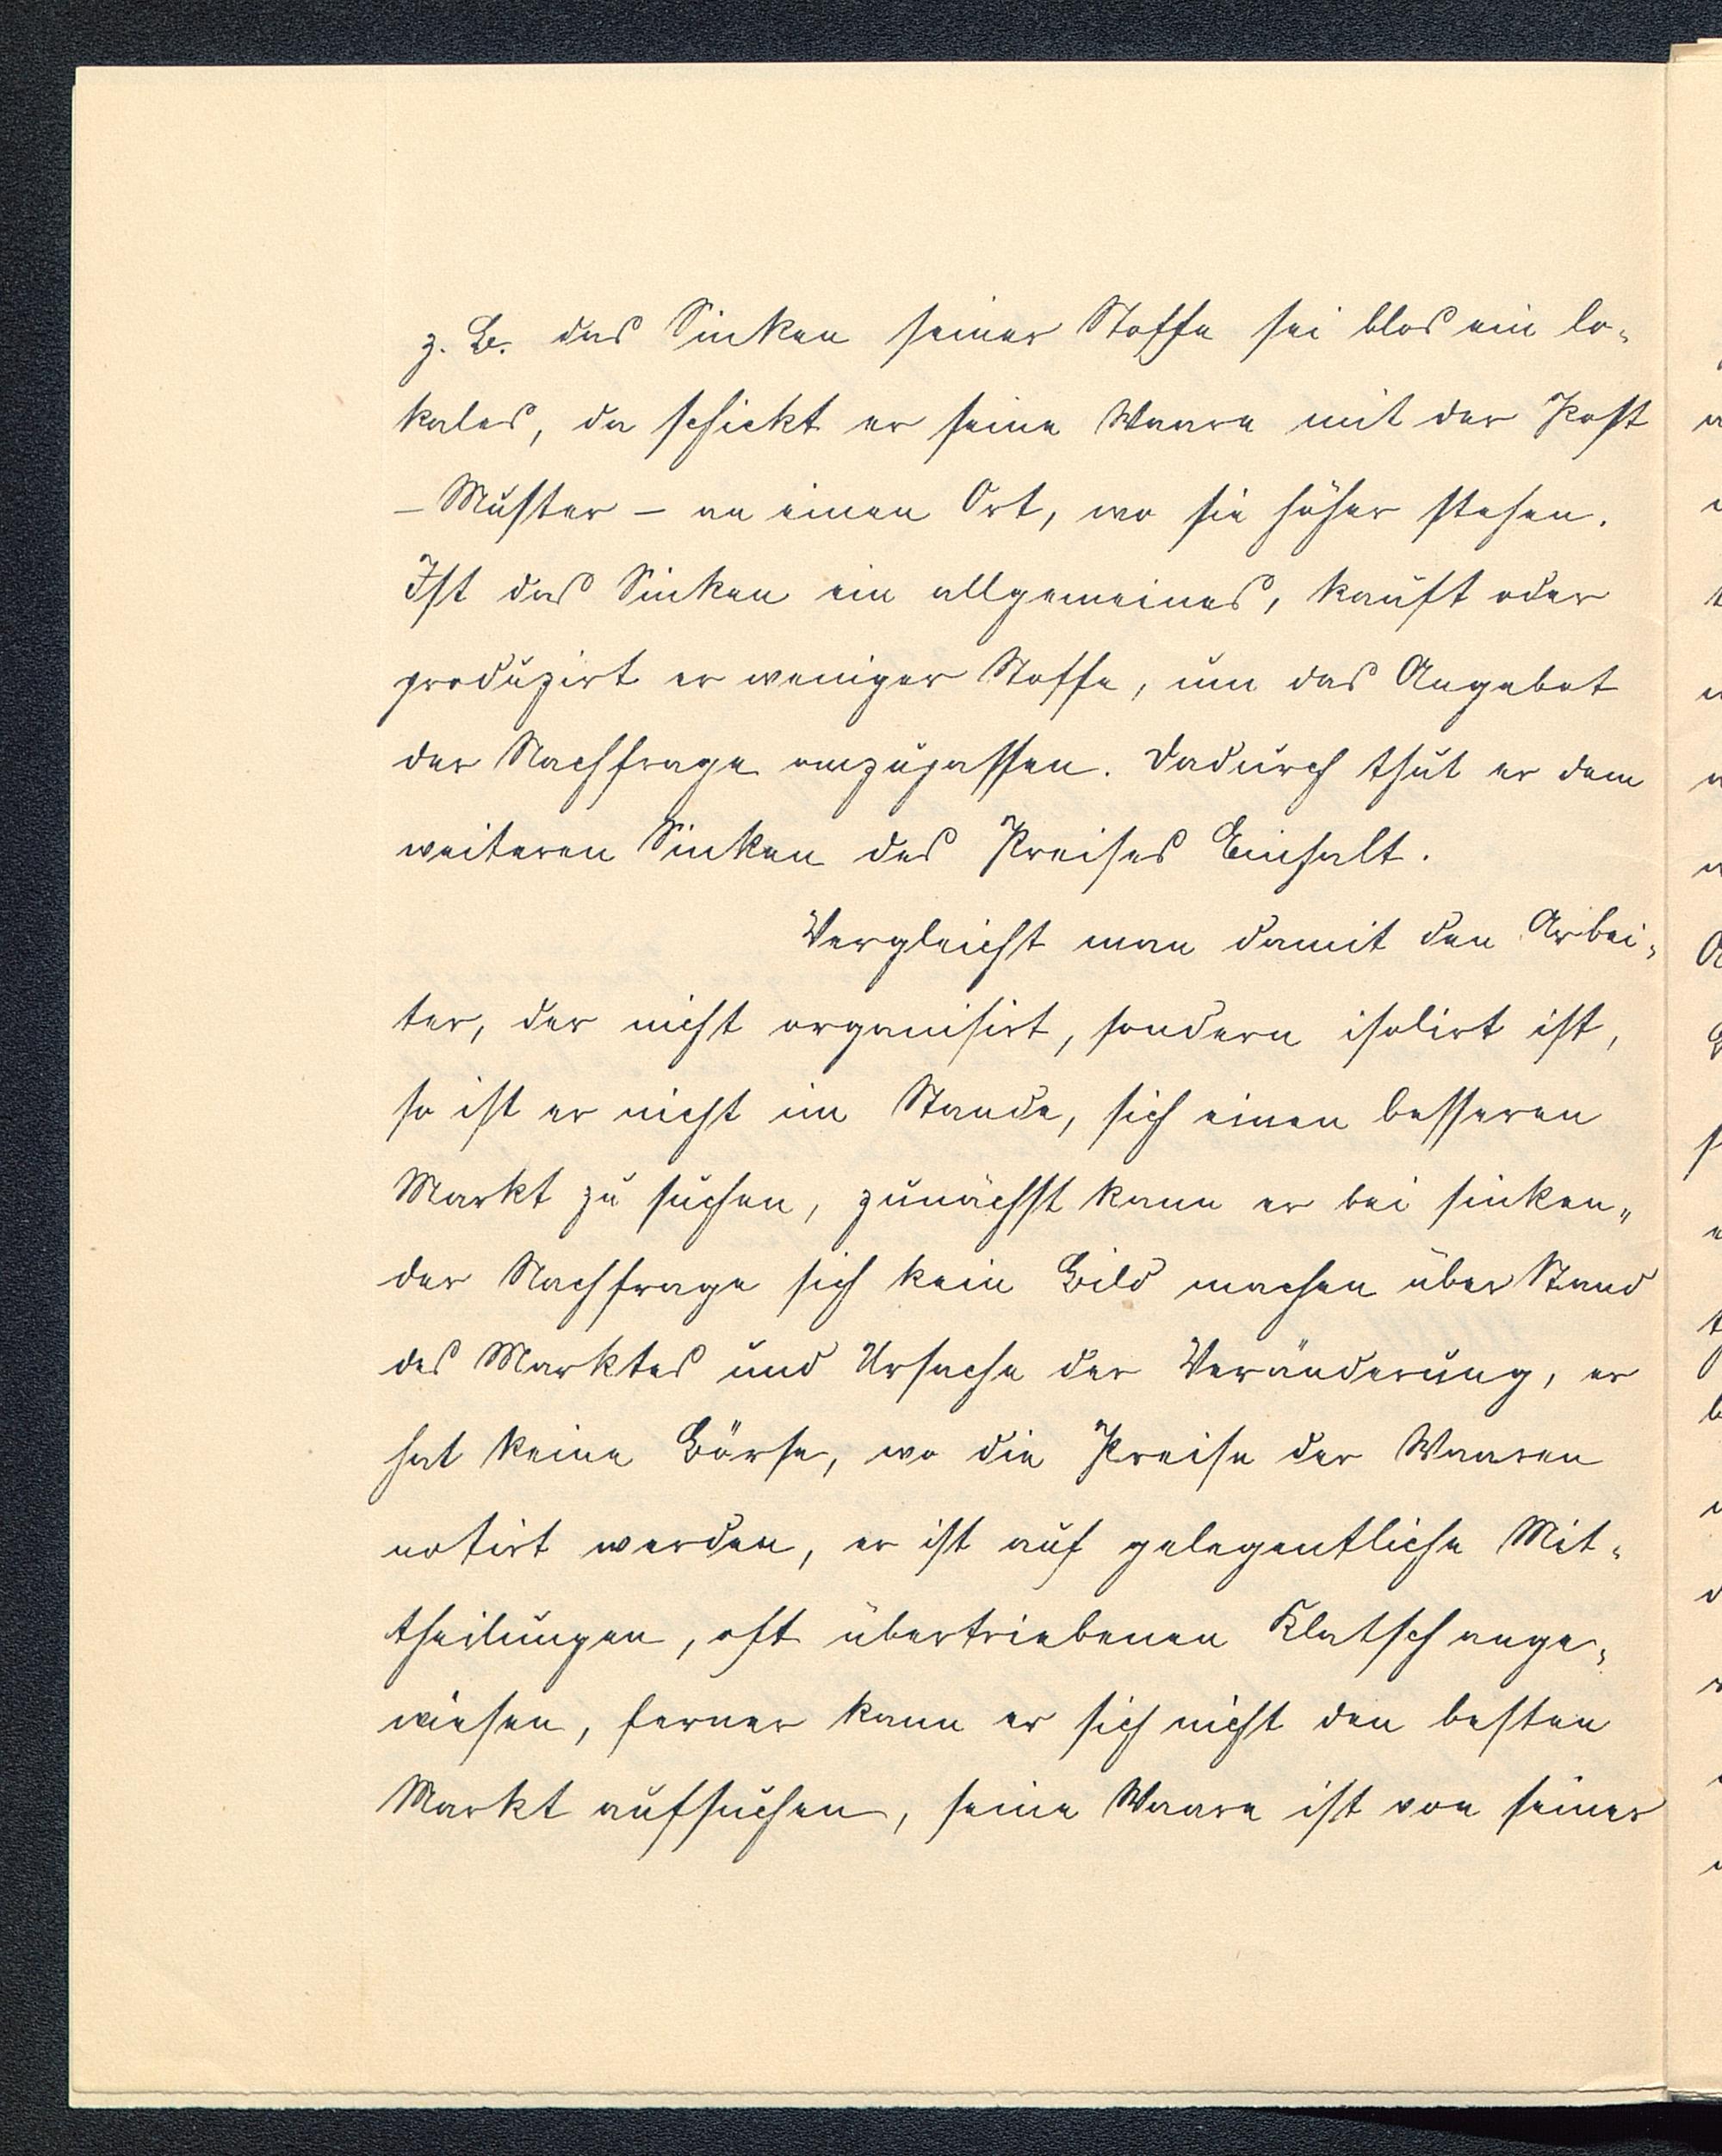 z. B. das Sinken seiner Stoffe sei blos ein lo-
kales, da schickt er seine Waare mit der Post
– Muster – an einen Ort, wo sie höher stehen.
Ist das Sinken ein allgemeines, kauft oder
produzirt er weniger Stoffe, um das Angebot
der Nachfrage anzupassen. Dadurch thut er dem
weiteren Sinken des Preises Einhalt.
Vergleicht man damit den Arbei-
ter, der nicht organisirt, sondern isolirt ist,
so ist er nicht im Stande, sich einen besseren
Markt zu suchen, zunächst kann er bei sinken-
der Nachfrage sich kein Bild machen über Stand
des Marktes und Ursache der Veränderung, er
hat keine Börse, wo die Preise der Waaren
notirt werden, er ist auf gelegentliche Mit-
theilungen, oft übertriebenen Klatsch ange-
wiesen, ferner kann er sich nicht den besten
Markt aufsuchen, seine Waare ist von seiner